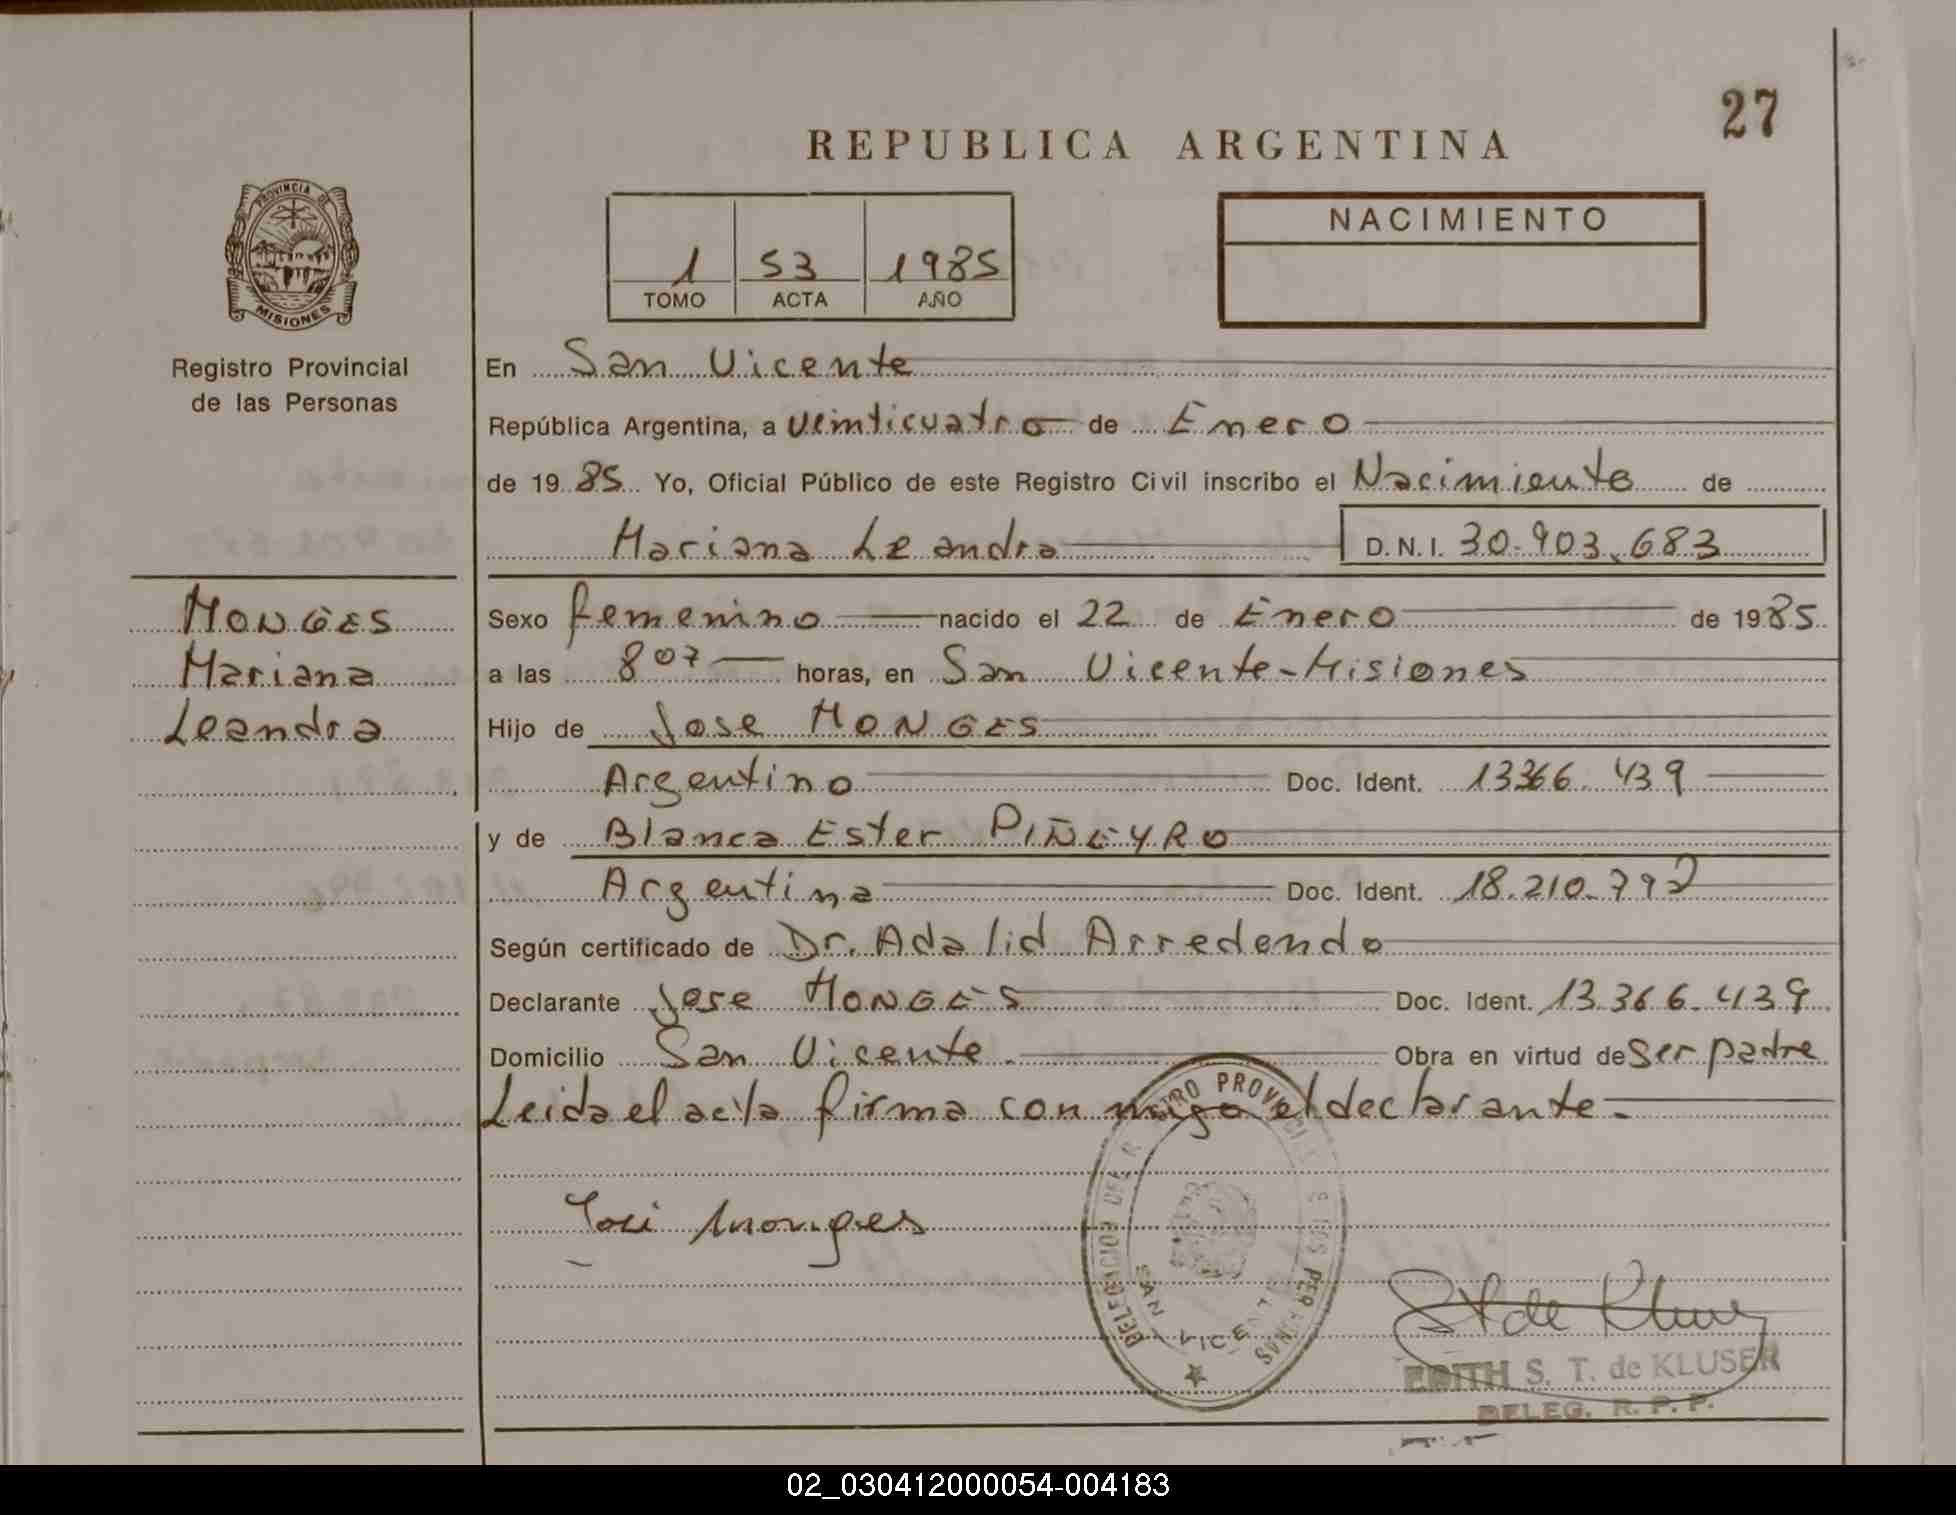 27
REPUBLICA ARGENTINA
PROVINCIA DE
MISIONES
1 53 1985
TOMO ACTA AÑO
NACIMIENTO
Registro Provincial
de las Personas
En San Vicente
República Argentina, a veinticuatro de Enero
de 1985 Yo, Oficial Público de este Registro Civil inscribo el Nacimiento de
Mariana Leandra D.N.I. 30.903.683
MONGES
Mariana
Leandra
Sexo femenino nacido el 22 de Enero de 1985
a las 8 07 horas, en San Vicente - Misiones
Hijo de Jose MONGES
Argentino Doc. Ident. 13366.439
y de Blanca Ester PIÑEYRO
Argentina Doc. Ident. 18.210.792
Según certificado de Dr. Adalid Arredondo
Declarante Jose MONGES Doc. Ident. 13.366.439
Domicilio San Vicente. Obra en virtud de ser padre
Leida el acta firma con migo el declarante.
José Monges
SAN VICENTE
St de Kluser
EDITH S. T. de KLUSER
DELEG. R. P. P.
02_030412000054-004183